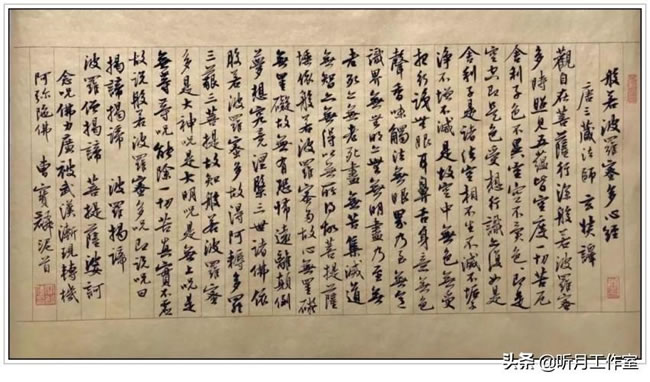 般若波羅蜜多心經
唐三藏法師玄奘譯
觀自在菩薩行深般若波羅蜜
多時照見五蘊皆空度一切苦厄
舍利子色不異空空不異色色即是
空空即是色受想行識亦復如是
舍利子是諸法空相不生不滅不垢不
净不增不減是故空中無色無受
想行識無眼耳鼻舌身意無色
聲香味觸法無眼界乃至無意
識界無無明亦無無明盡乃至無
老死亦無老死盡無苦集滅道
無智亦無得以無所得故菩提薩
埵依般若波羅蜜多故心無罣礙
無罣礙故無有恐怖遠離顛倒
夢想究竟涅槃三世諸佛依
般若波羅蜜多故得阿耨多羅
三藐三菩提故知般若波羅蜜
多是大神咒是大明咒是無上咒是
無等等咒能除一切苦真實不虛
故说般若波羅蜜多咒即说咒曰
揭諦揭諦 波羅揭諦
波羅僧揭諦 菩提薩婆訶
念咒佛力廣被武漢漸現轉機
阿弥陀佛 曹寶麟泥首
头条@听月工作室